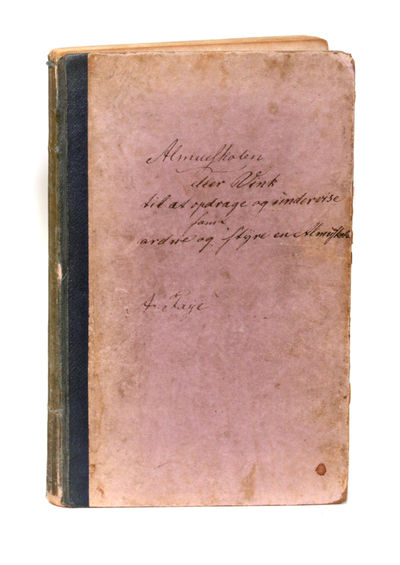 Almueskolen
eller Vink
til at opdrage og undervise
samt
ordne og styre en Almuskole
A. Faye